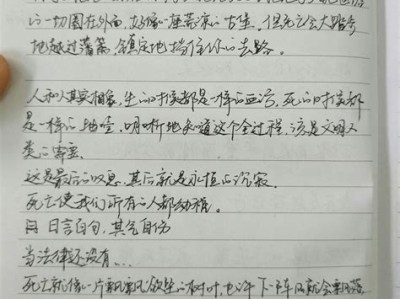 的一切围在外面,好像一座荒凉的古堡,但死亡会大踏步
地越过藩篱,镇定地挡住你的去路。
人和人其实相象,生的时候都是一样血污,死的时候都
是一样的抽空,明晰地知道这个全过程,该是文明人
类的
这是最后的叹息,其后就是永恒的沉寂
死亡使我们所有的人都
日言自句,其气自伤
当法律还没有...
死亡就像一片飘飘欲坠的树叶,也许下一阵风就会飘落